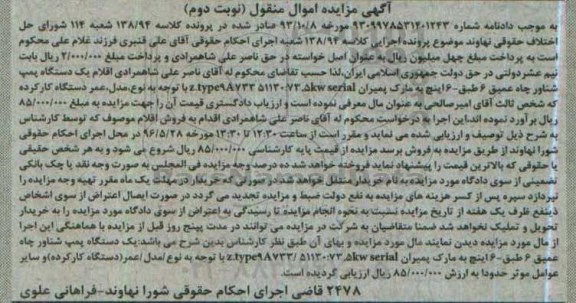 آگهی مزایده اموال منقول (نوبت دوم)
به موجب دادنامه شماره ۹۳۰۹۹۷۸۵۳۱۴۰۱۲۴۳ مورخه ۹۳/۱۰/۸ صادر شده در پرونده کلاسه ۱۳۸/۹۴ شعبه ۱۱۴ شورای حل
اختلاف حقوقی نهاوند موضوع پرونده اجرایی کلاسه ۱۳۸/۹۴ شعبه اجرای احکام حقوقی آقای علی قنبری فرزند غلام علی محکوم
است به پرداخت مبلغ چهل میلیون ریال به عنوان اصل خواسته در حق ناصر علی شاهمرادی و پرداخت مبلغ ۲/۰۰۰/۰۰۰ ریال بابت
نیم عشردولتی در حق دولت جمهوری اسلامی ایران،لذا حسب تقاضای محکوم له آقای ناصر علی شاهمرادی اقلام یک دستگاه پمپ
شناور چاه عمیق ۶طبق-۶اینچ به مارک پمیران z.type۹۸۷۳۳ 5113۰۷۳.۵kw serial با توجه به نوع،مدل،عمر دستگاه کارکرده
که شخص ثالث آقای امیرصالحی به عنوان مال معرفی نموده است و ارزیاب دادگستری قیمت آن را جهت مزایده به مبلغ ۸۵/۰۰۰/۰۰۰
ریال برآورد نموده اند،این اجرا به درخواست محکوم له آقای ناصر علی شاهمرادی اقدام به فروش اقلام موصوف که توسط کارشناس
به شرح ذیل توصیف و ارزیابی شده می نماید و مقرر است از ساعت ۱۲:۳۰ تا ۱۳:۳۰ مورخه ۹۶/۵/۲۸ در محل اجرای احکام حقوقی
شورا نهاوند از طریق مزایده به فروش برسد مزایده از قیمت پایه کارشناسی ۸۵/۰۰۰/۰۰۰ ریال شروع می شود و به هر شخص حقیقی
یا حقوقی که بالاترین قیمت را پیشنهاد نماید فروخته خواهد شد ده درصد وجه مزایده فی المجلس به صورت وجه نقد یا چک بانکی
تضمینی از سوی دادگاه مورد مزایده به نام خریدار منتقل خواهد شد در صورتی که خریدار در مهلت یک ماه مقرر تهیه وجه مزایده را
نپردازد سپرده پس از کسر هزینه های مزایده به نفع دولت ضبط و مزایده تجدید می گردد در صورت ایصال اعتراض از سوی اشخاص
ذینفع ظرف یک هفته از تاریخ مزایده نسبت به نحوه انجام مزایده تا رسیدگی به اعتراض از سوی دادگاه مورد مزایده را به خریدار
تحویل و تملیک نخواهد شد ضمنا متقاضیان به شرکت در مزایده می توانند در مدت پنج روز قبل از مزایده با هماهنگی این اجرا
از مال مورد مزایده دیدن نمایند مال مورد مزایده و بهای آن طبق نظر کارشناس بدین شرح می باشد:یک دستگاه پمپ شناور چاه
عمیق ۶طبق-۶اینچ به مارک پمیران z.type۹۸۷۳۳/ 5113۰۷۳.۵kw serial با توجه به نوع/مدل/عمر(دستگاه کارکرده)و سایر
عوامل موثر حدودا به ارزش ۸۵/۰۰۰/۰۰۰ ریال ارزیابی گردیده است.
۲۴۷۸ قاضی اجرای احکام حقوقی شورا نهاوند-فراهانی علوی